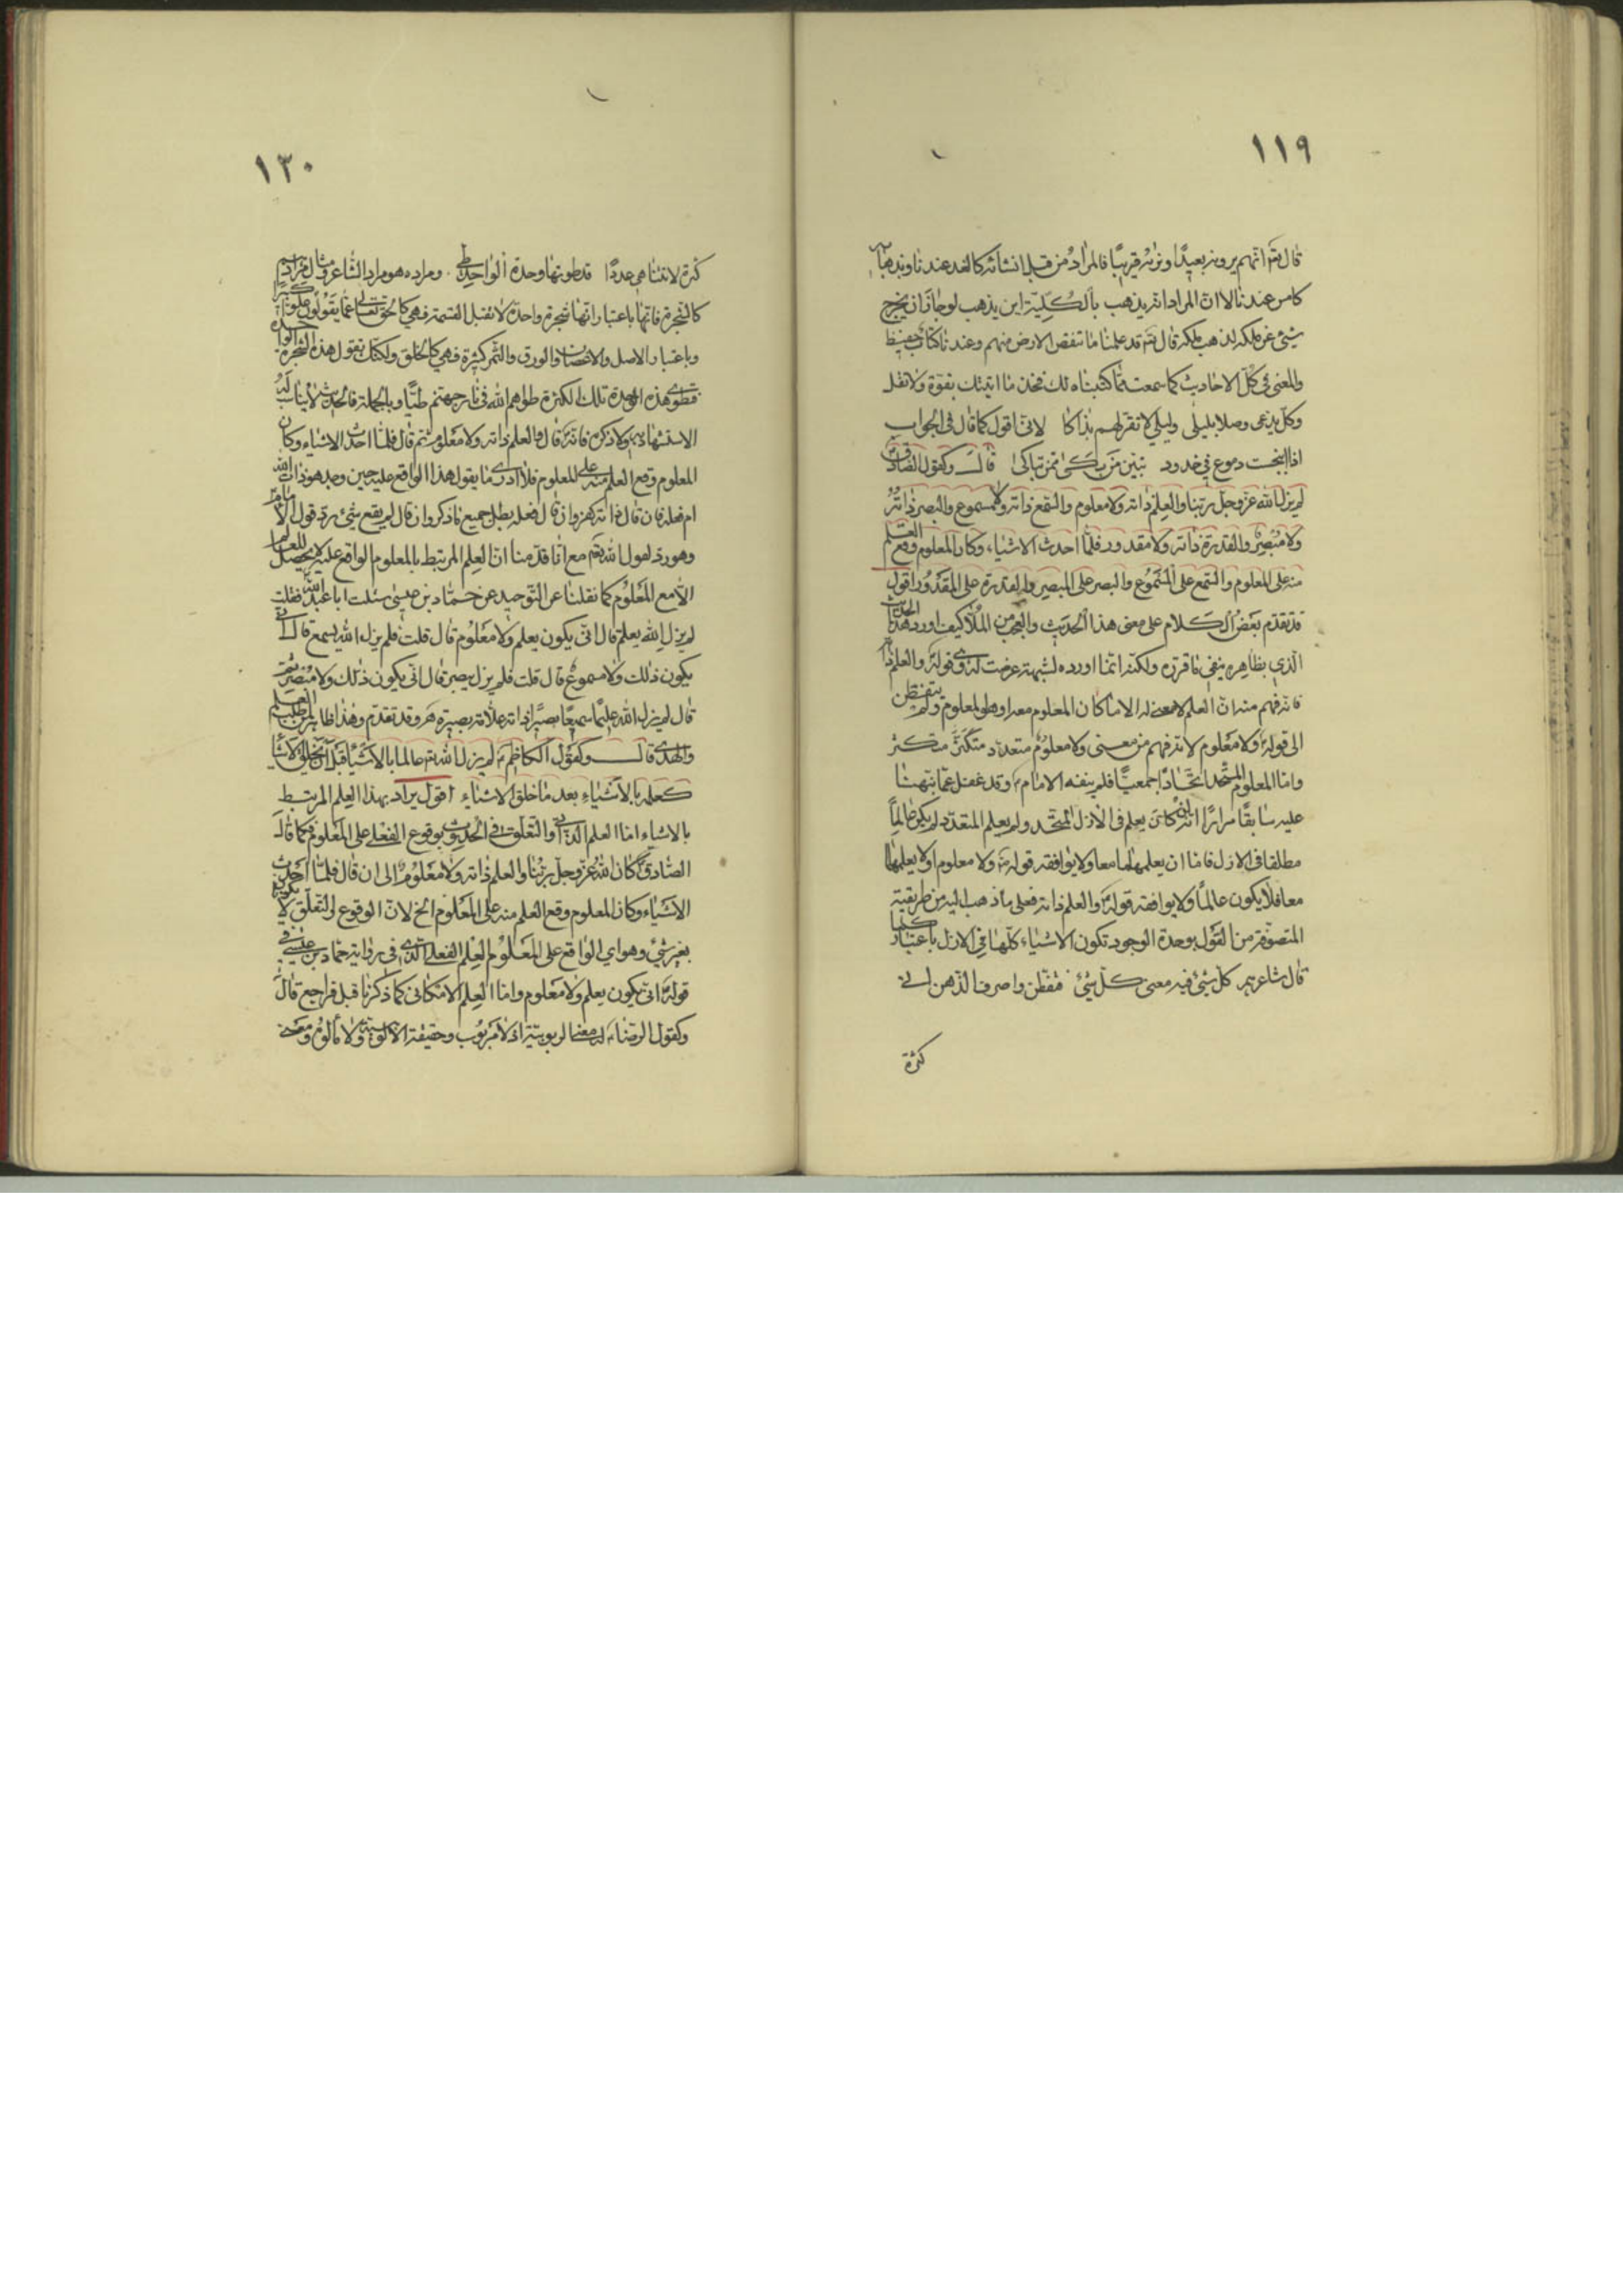 ١١٩
قال تعالى انهم يرونه بعيدًا ونراه قريبًا فالمراد من قبل انشائه كالغد عندنا وبذهابه
كامس عندنا لا ان المراد انه يذهب بالكلية اين يذهب لو جاز ان يخرج
شيئ عن ملكه لذهب ملكه قال تعالى قد علمنا ما تنقص الارض منهم وعندنا كتاب حفيظ
والمعنى في كل الاحاديث كما سمعت مما كتبناه لك فخذ ما اتيتك بقوة ولا تقل
وكل يدعى وصلا بليلى وليلى لا تقر لهم بذاكا لانى اقول كما قال فى الجواب
اذا انبجست دموع في خدود تبين من بكى ممن تباكى قال وكقول الصادق
لم يزل الله عز وجل ربنا والعلم ذاته ولا معلوم والسمع ذاته ولا مسموع والبصر ذاته
ولا مبصر والقدرة ذاته ولا مقدور فلما احدث الاشياء وكان المعلوم وقع العلم
منه على المعلوم والسمع على المسموع والبصر على المبصر والقدرة على المقدور اقول
قد تقدم بعض الكلام على معنى هذا الحديث والعجب من الملا كيف اورد هذا الحديث
الذي بظاهره ينفي ما قرره ولكنه انما اورده لشبهة عرضت له في قوله والعلم ذاته
فانه فهم منه ان العلم لا معنى له الا ما كان المعلوم معه او هو المعلوم ولم يتفطن
الى قوله ولا معلوم لانه فهم من معنى ولا معلوم متعدد متكثر
واما المعلوم المتحد اتحادًا جمعيًا فلم ينفه الامام وقد غفل عما نبهنا
عليه سابقًا مرارًا انه ان كان يعلم فى الازل المتحد ولم يعلم المتعدد لم يكن عالمًا
مطلقا فى الازل فاما ان يعلمهما معا ولا يوافقه قوله ولا معلوم او لا يعلمهما
معا فلا يكون عالمًا ولا يوافقه قوله والعلم ذاته فعلى ما ذهب اليه من طريقة
المتصوفة من القول بوحدة الوجود تكون الاشياء كلها في الازل باعتبار كما
قال شاعرهم كل شيئ فيه معنى كل شيئ فتفطن واصرف الذهن الى
كثرة
١٢٠
كثرة لا تتناهى عددًا قد طوتها وحدة الواحد طى ومراده هو مراد الشاعر ومثال مرادهم
كالشجرة فانها باعتبار انها شجرة واحدة لا تقبل القسمة فهي كالحق تعالى عما يقولون علوا كبيرا
وباعتبار الاصل والاغصان والورق والثمر كثيرة فهي كالخلق ولكنك تقول هذه الشجرة الواحدة
فتطوى هذه الوحدة تلك الكثرة طواهم الله في نار جهنم طيًا وبالجملة فالحديث لا يناسب
الاستشهاد به ولا ذكره فانه قال والعلم ذاته ولا معلوم ثم قال فلما احدث الاشياء وكان
المعلوم وقع العلم منه على المعلوم فلا ادرى ما يقول هذا الواقع عليه حين وجد هو ذات الله
ام فعله فان قال ذاته كفر وان قال فعله بطل جميع ما ذكر وان قال لم يقع شيئ رد قول الامام
وهو رد لقول الله تعالى مع انا قدمنا ان العلم المرتبط بالمعلوم الواقع عليه لا يحصل
الا مع المعلوم كما نقلنا عن التوحيد عن حماد بن عيسى سئلت ابا عبد الله فقلت
لم يزل الله يعلم قال انى يكون يعلم ولا معلوم قال قلت فلم يزل الله يسمع قال انى
يكون ذلك ولا مسموع قال قلت فلم يزل يبصر قال انى يكون ذلك ولا مبصر ثم
قال لم يزل الله عليمًا سميعًا بصيرًا ذات علامة بصيرة وقد تقدم وهذا ظاهر لمن طلب العلم
والهدى قال وكقول الكاظم لم يزل الله عالما بالاشياء قبل ان يخلق الاشياء
كعلمه بالاشياء بعد ما خلق الاشياء اقول يراد بهذا العلم المرتبط
بالاشياء اما العلم الذاتي والتعلق في الحديث بوقوع الفعلى على المعلوم كما قال
الصادق كان الله عز وجل ربنا والعلم ذاته ولا معلوم الى ان قال فلما احدث
الاشياء وكان المعلوم وقع العلم منه على المعلوم الخ لان الوقوع والتعلق لا يكون
بغير شيئ وهو اي الواقع على المعلوم العلم الفعلي الذى فى رواية حماد بن عيسى في
قوله انى يكون يعلم ولا معلوم واما العلم الامكانى كما ذكرنا قبل فراجع قال
وكقول الرضا له معنى الربوبية اذ لا مربوب وحقيقة الالوهية ولا مألوه ومعنى